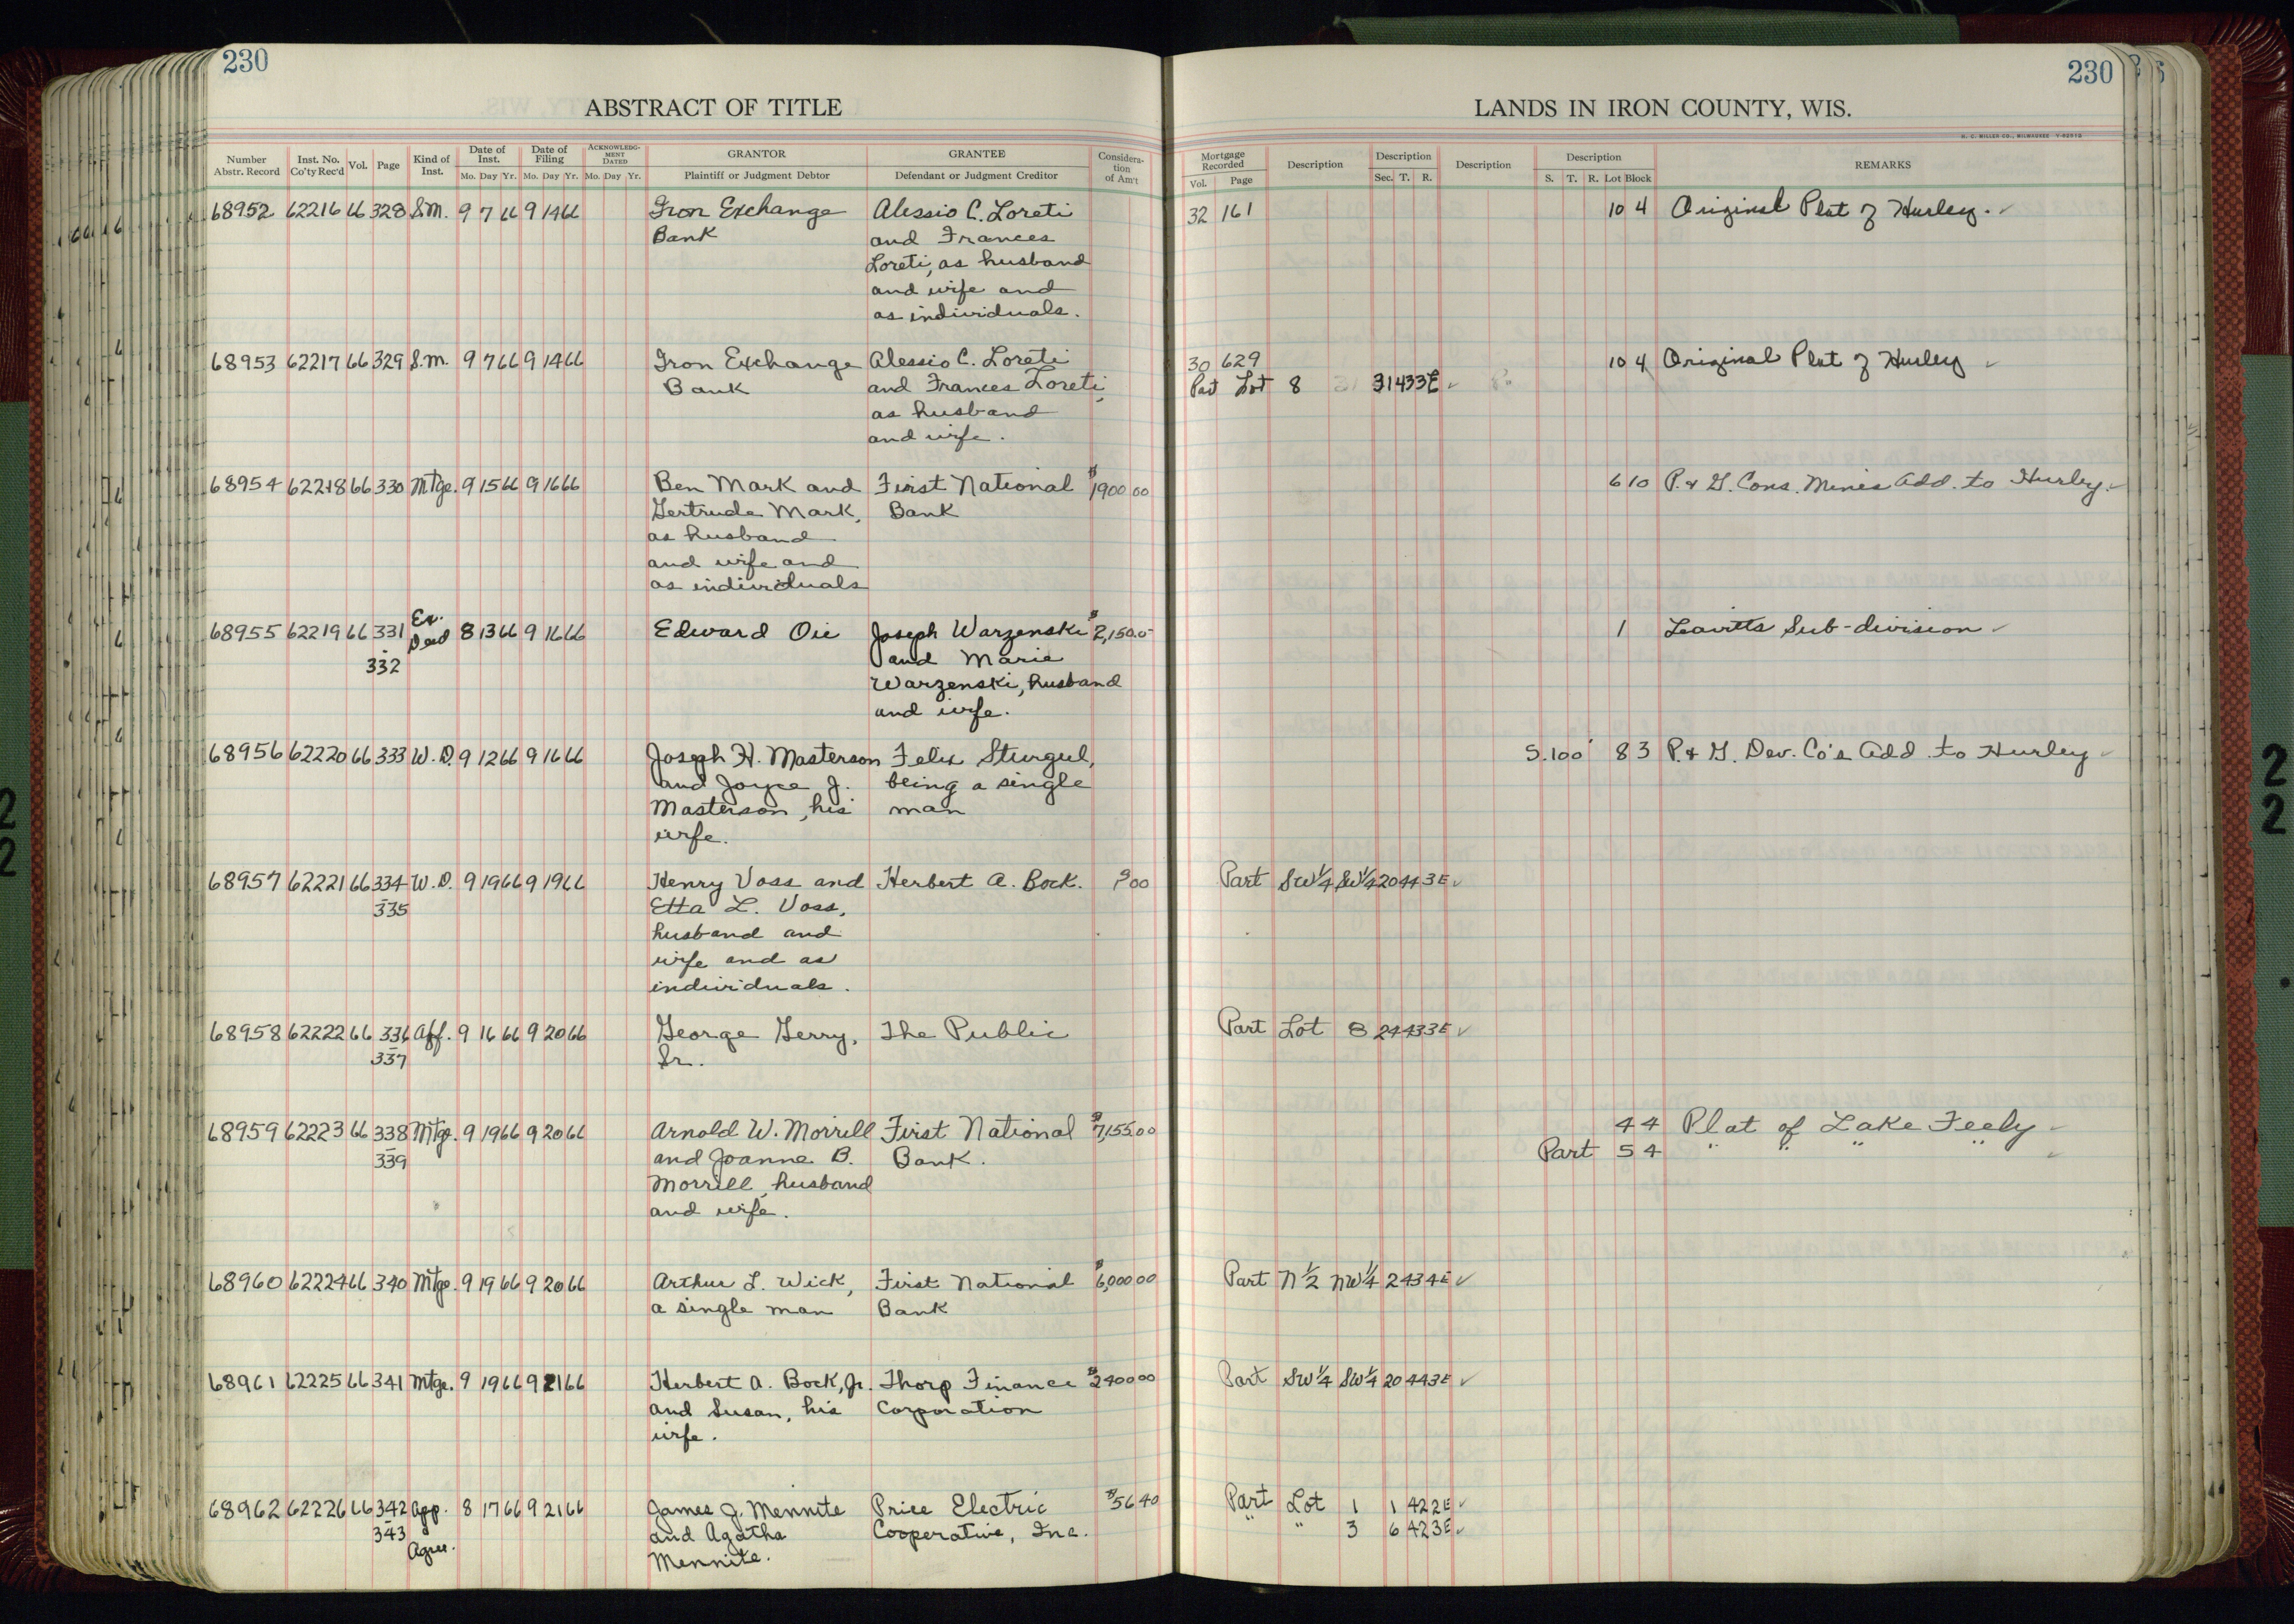 230
230
ABSTRACT OF TITLE
LANDS IN IRON COUNTY, WIS.
H. C. MILLER CO., MILWAUKEE
Number Abstr. Record Inst. No. Co'ty Rec'd Vol. Page Kind of Inst. Date of Inst. Mo. Day Yr. Date of Filing Mo. Day Yr. ACKNOWLEDGMENT DATED Mo. Day Yr. GRANTOR Plaintiff or Judgment Debtor GRANTEE Defendant or Judgment Creditor Consideration of Am't
Mortgage Recorded Vol. Page Description Description Sec. T. R. Description Description S. T. R. Lot Block REMARKS
68952 62216 66 328 S.M. 9 7 66 9 14 66 Iron Exchange Alessio C. Loreti 32 161 10 4 Original Plat of Hurley.
Bank and Frances
Loreti, as husband
and wife and
as individuals.
68953 62217 66 329 S.M. 9 7 66 9 14 66 Iron Exchange Alessio C. Loreti 30 629 10 4 Original Plat of Hurley
Bank and Frances Loreti, Part Lot 8 31 43 3E
as husband
and wife.
68954 62218 66 330 Mtge. 9 15 66 9 16 66 Ben Mark and First National $1900 00 6 10 P. & G. Cons. Mines Add. to Hurley.
Gertrude Mark, Bank
as husband
and wife and
as individuals
68955 62219 66 331 Ex. Deed 8 13 66 9 16 66 Edward Oie Joseph Warzenski $2,150.0 1 Leavitts Sub-division
332 and Marie
Warzenski, husband
and wife.
68956 62220 66 333 W.D. 9 12 66 9 16 66 Joseph H. Masterson Felix Sturgul, S.100' 8 3 P. & G. Dev. Co's Add. to Hurley
and Joyce J. being a single
Masterson, his man
wife.
68957 62221 66 334 W.D. 9 19 66 9 19 66 Henry Voss and Herbert A. Bock. 00 Part SW¼ SW¼ 20 44 3E
335 Etta L. Voss,
husband and
wife and as
individuals.
68958 62222 66 336 Aff. 9 16 66 9 20 66 George Gerry, The Public Part Lot 8 24 43 3E
337 Sr.
68959 62223 66 338 Mtge. 9 19 66 9 20 66 Arnold W. Morrill First National $7,155.00 4 4 Plat of Lake Feely
339 and Joanne B. Bank. Part 5 4 " " " "
Morrill, husband
and wife.
68960 62224 66 340 Mtge. 9 19 66 9 20 66 Arthur L. Wick, First National $6,000 00 Part N½ NW¼ 2 43 4E
a single man Bank
68961 62225 66 341 Mtge. 9 19 66 9 21 66 Herbert A. Bock, Jr. Thorp Finance $2400 00 Part SW¼ SW¼ 20 44 3E
and Susan, his Corporation
wife.
68962 62226 66 342 App. 8 17 66 9 21 66 James J. Mennite Price Electric $56 40 Part Lot 1 1 42 2E
343 Agree. and Agatha Cooperative, Inc. " " 3 6 42 3E
Mennite.